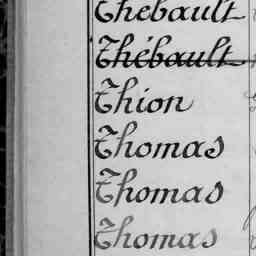 Thébault
Thébault
Thion
Thomas
Thomas
Thomas